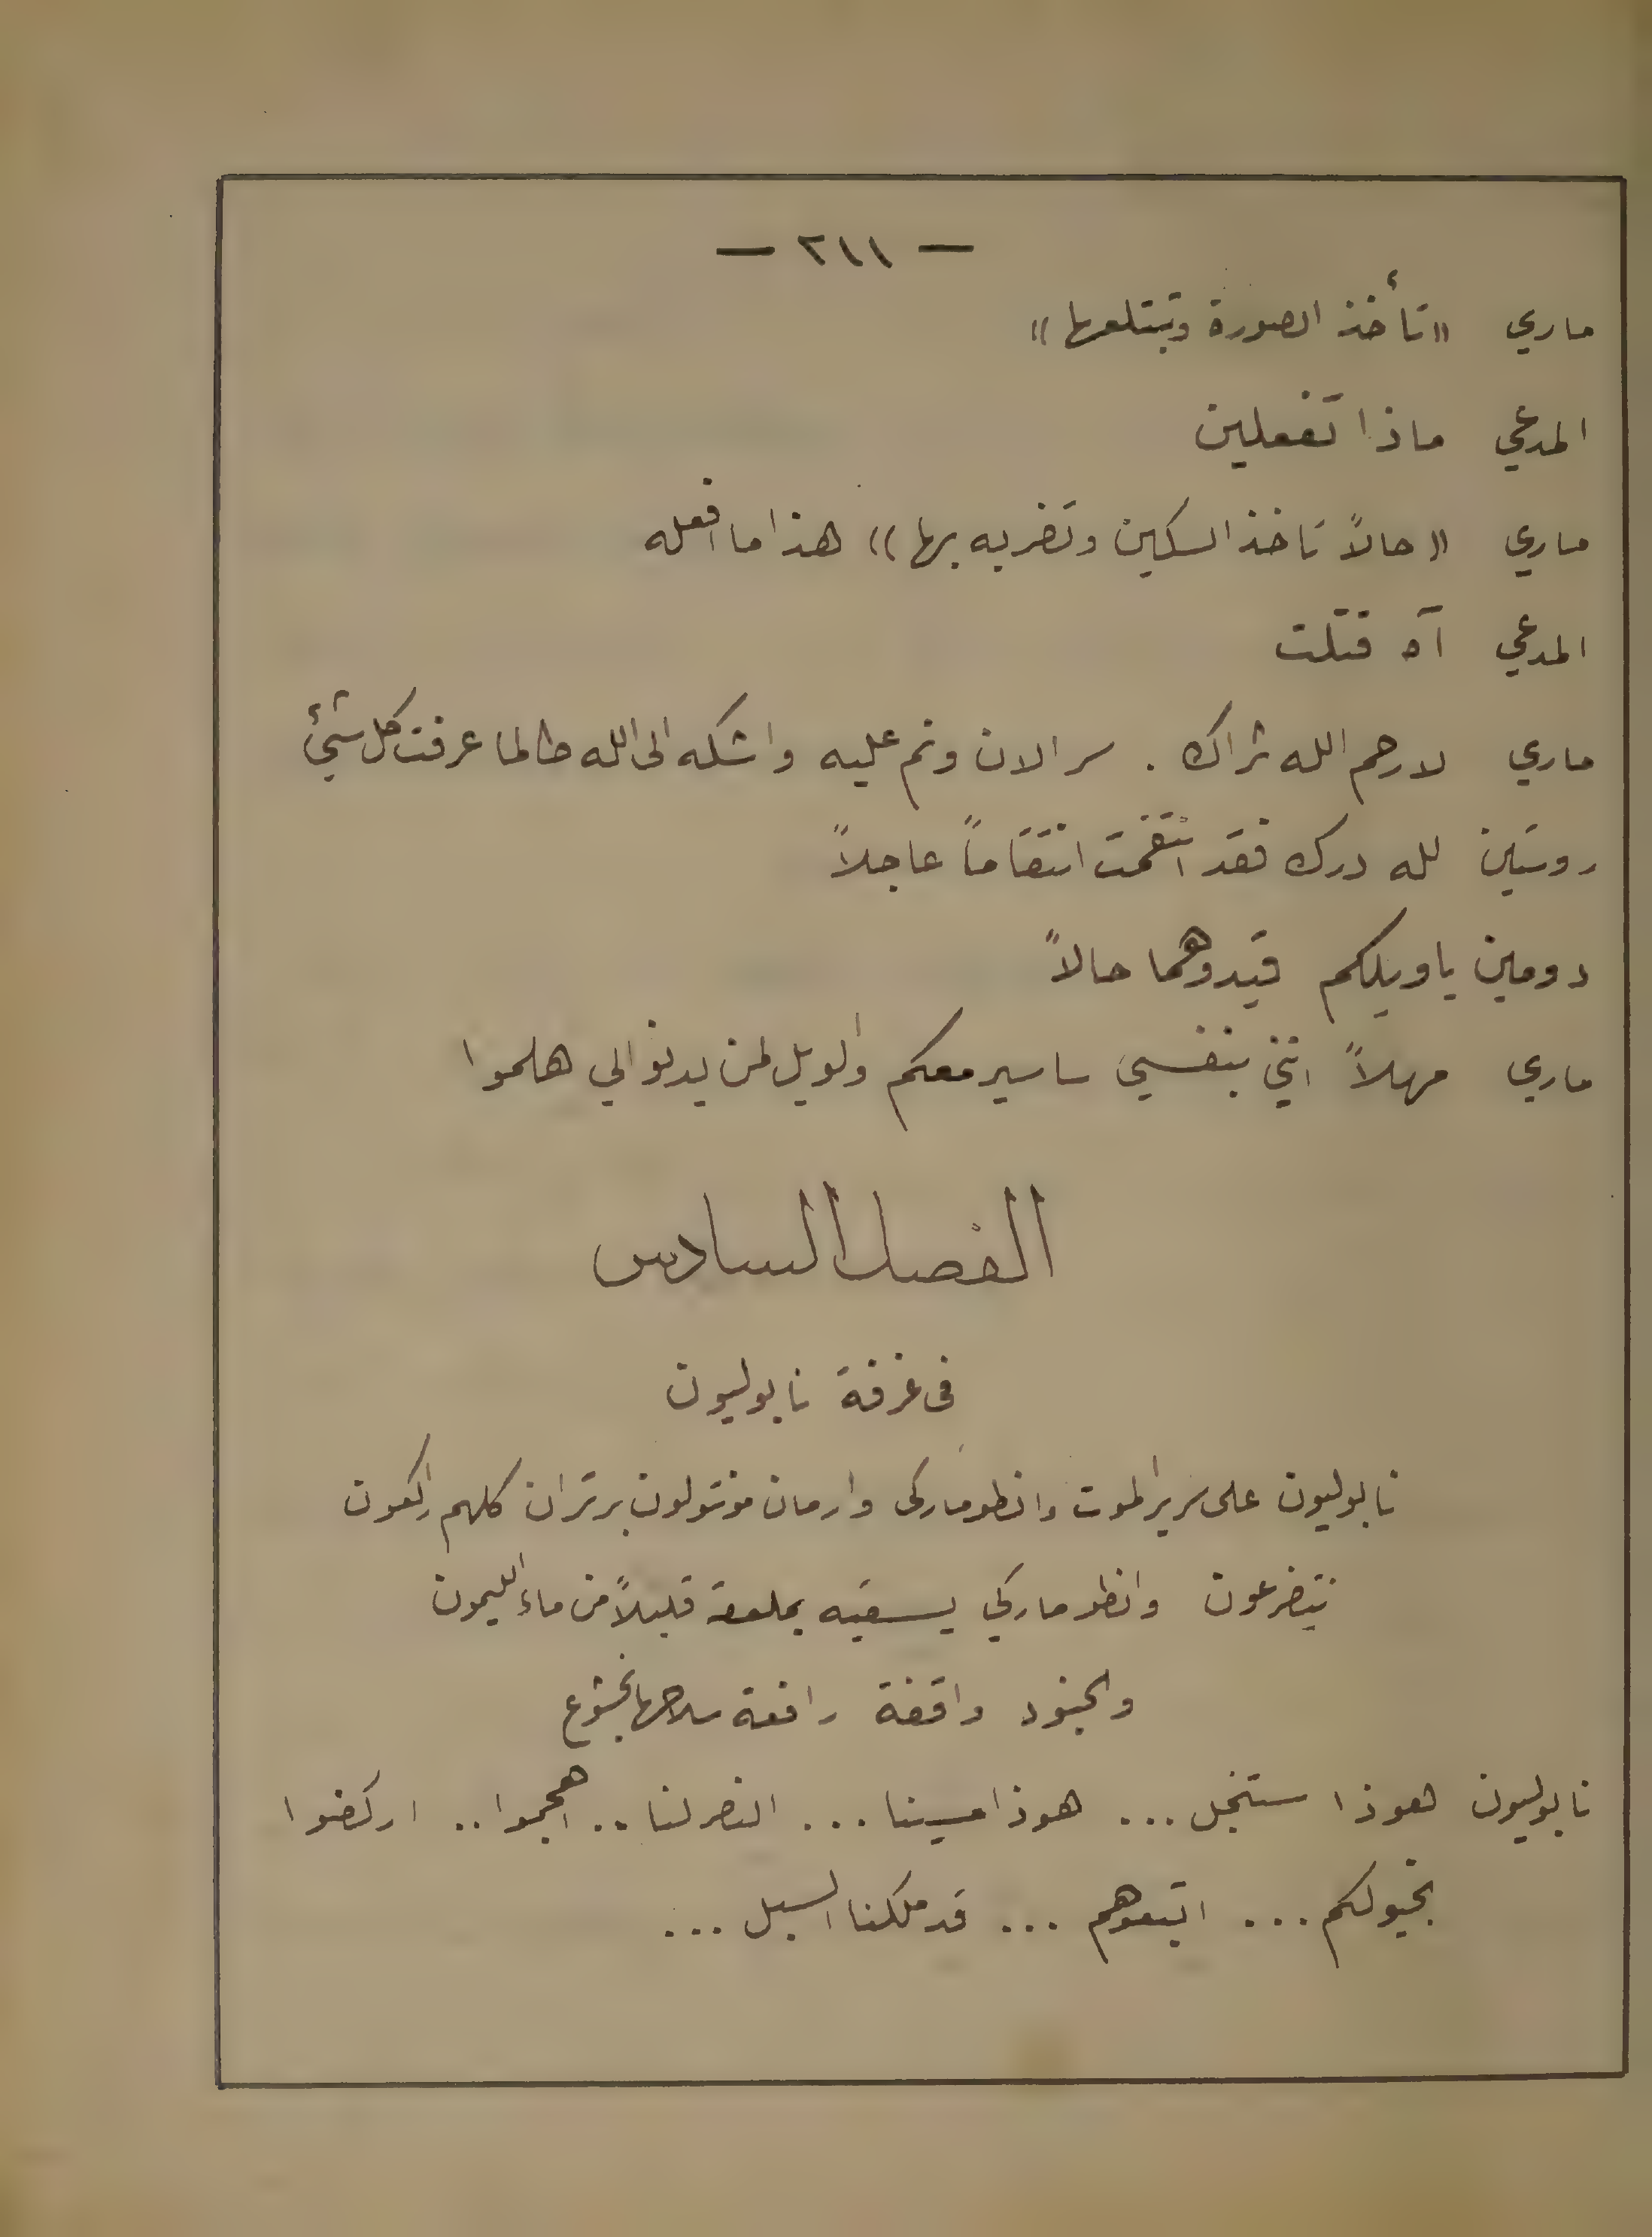 — ٢١١ —
ماري «تأخذ الصورة وتبتلعها»
المدعي ماذا تفعلين
ماري «حالاً تاخذ السكين وتضربه بها» هذا ما افعله
المدعي آه قتلت
ماري لا رحم الله ثراك . سر الان ونم عليه واشكه الى الله طالما عرفت كل شيئ
روستين لله درك فقد انتقمت انتقاماً عاجلاً
دومين ياويلكم قيدوهما حالاً
ماري مهلاً انني بنفسي ساسير معكم والويل لمن يدنو الي هلموا
الفصل السادس
فى غرفة نابوليون
نابوليون على سرير الموت وانطوماركى وارمان مونتولون برتران كلهم راكعون
يتضرعون وانطوماركي يسقيه بملعقة قليلاً من ماء الليمون
والجنود واقفة رافعة سلاحها بخشوع
نابوليون هوذا ستنجل ... هوذا مسينا ... النصر لنا .. اهجموا .. اركضوا
بخيولكم ... اتبعوهم ... قد ملكنا السبل ...